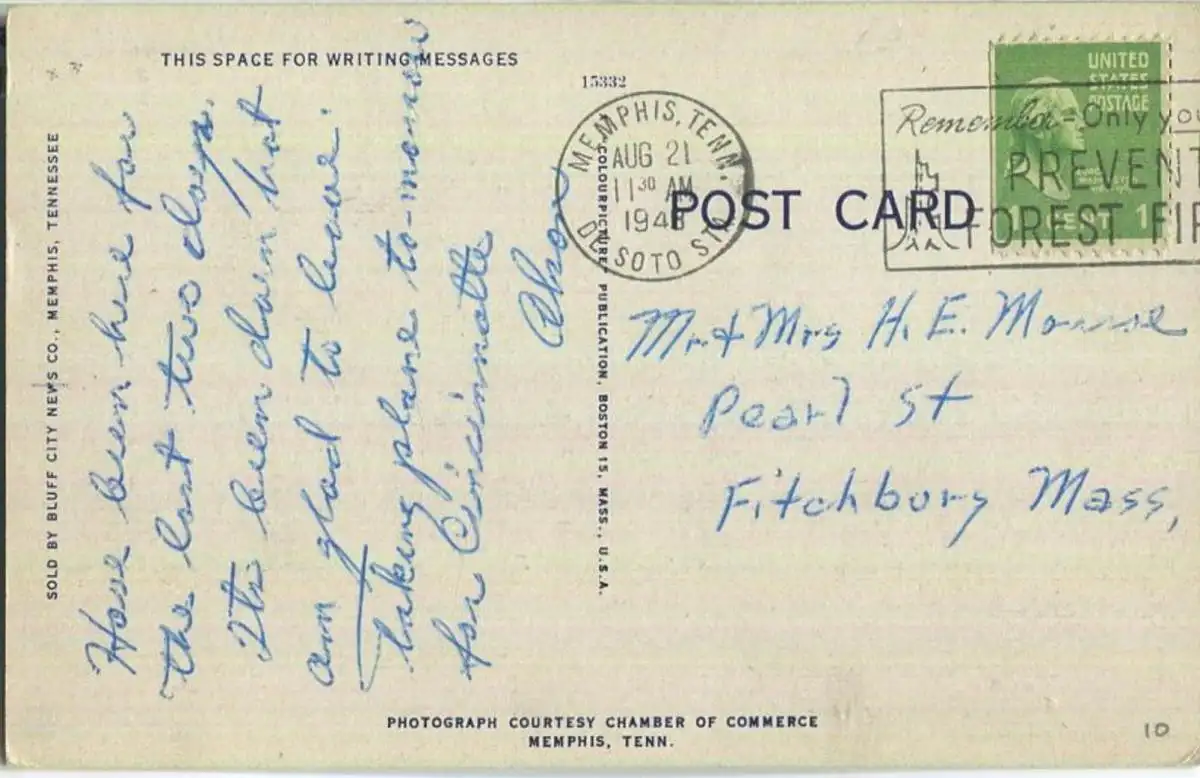 THIS SPACE FOR WRITING MESSAGES
SOLD BY BLUFF CITY NEWS CO., MEMPHIS, TENNESSEE
Have been here for
the last two days.
It's been darn hot
am glad to leave.
Taking plane to-morrow
for Cincinnatte
15332
COLOURPICTURE PUBLICATION, BOSTON 15, MASS., U.S.A.
MEMPHIS, TENN.
AUG 21
11 30 AM
DE SOTO STA
POST CARD
UNITED
STATES
POSTAGE
1 CENT 1
Remember - Only you
PREVENT
FOREST FIR
Mr & Mrs H. E.
Pearl St
Fitchburg Mass,
PHOTOGRAPH COURTESY CHAMBER OF COMMERCE
MEMPHIS, TENN.
10